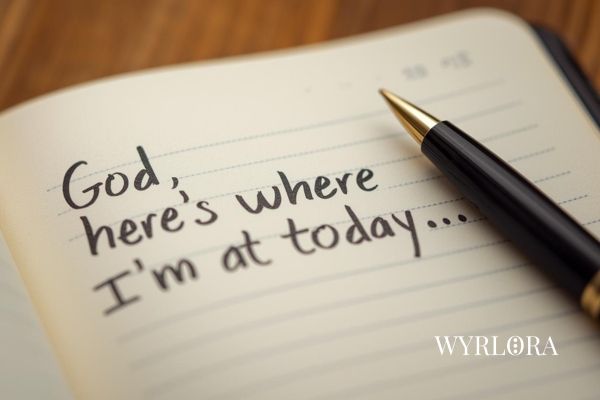 God,
here's where
I'm at today...
WYRLORA